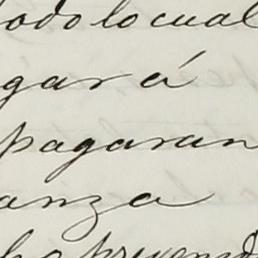 todo lo cual
gará á
pagaran
anza